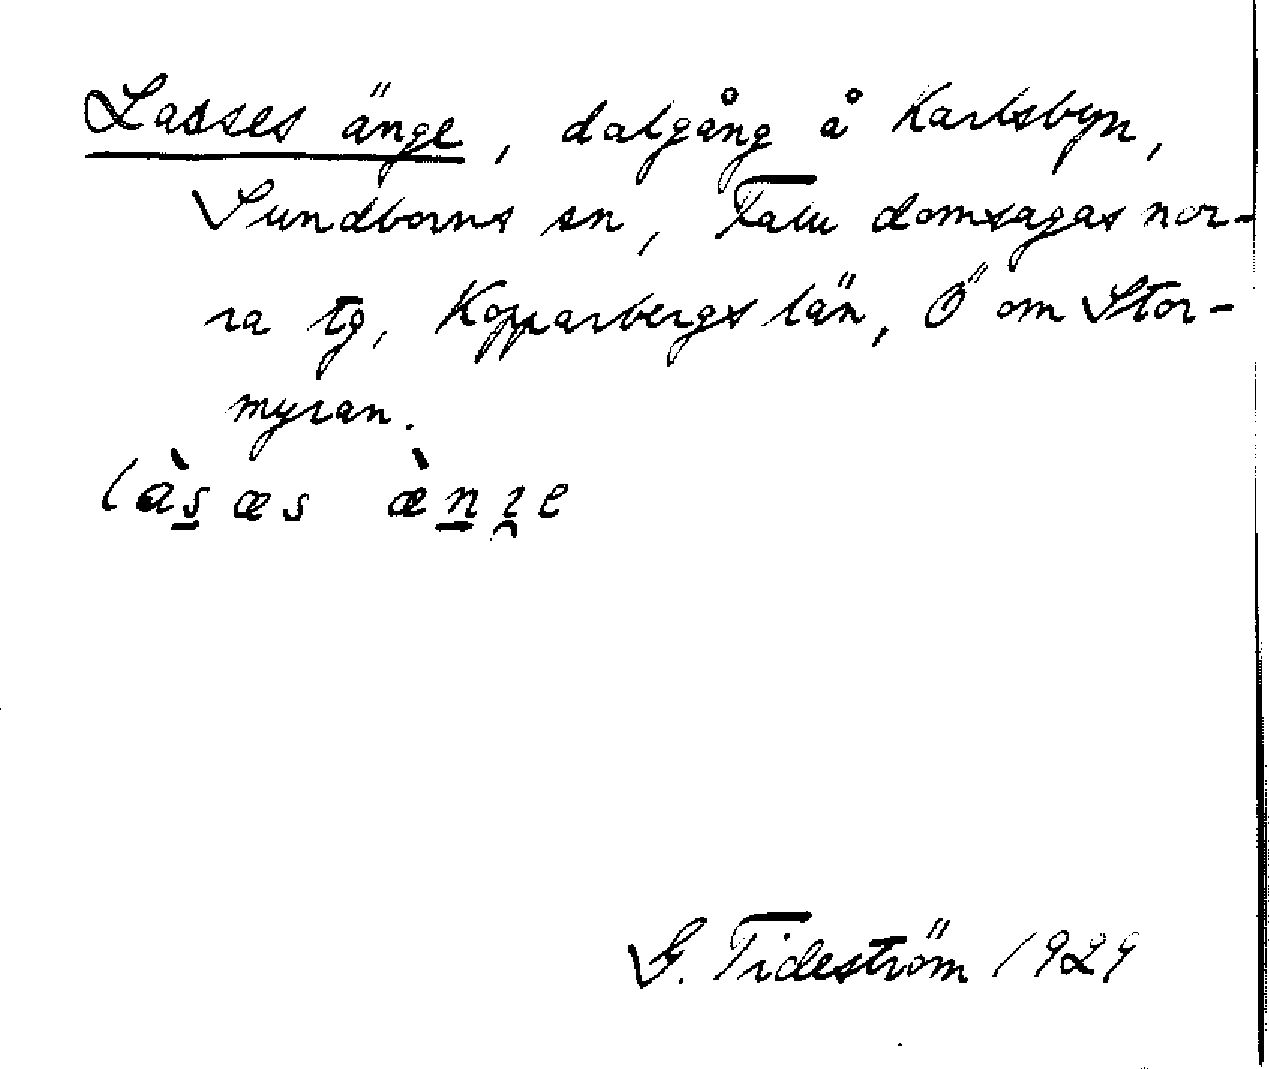 Lasses änge, dalgång å Karlsbyn,
Sundborns sn, Falu domsagas nor-
ra tg, Kopparbergs län, Ö om Stor-
myran.
làsæs
G. Tideström 1929